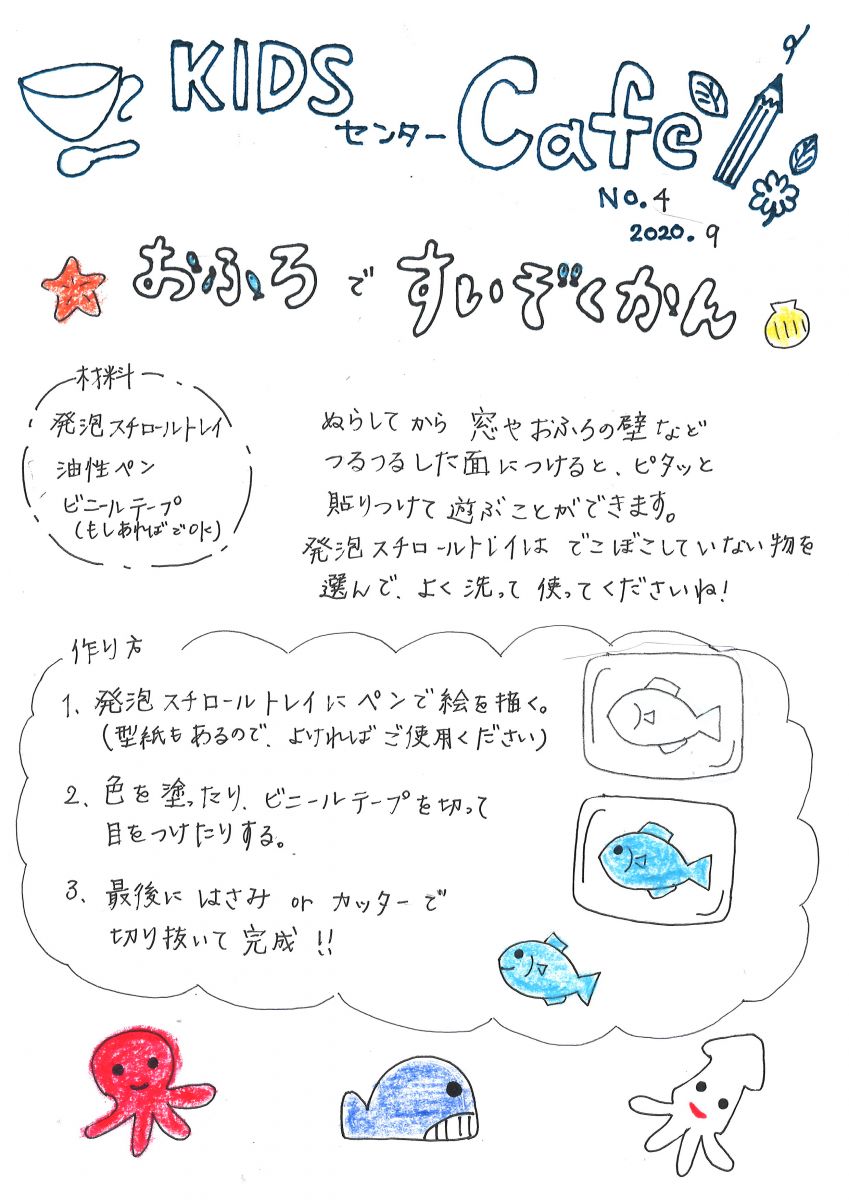 KIDS
センター Cafe
No.4
2020.9
おふろ で すいぞくかん
材料
発泡スチロールトレイ
油性ペン
ビニールテープ
(もしあればでOK)
ぬらしてから 窓やおふろの壁など
つるつるした面につけると、ピタッと
貼りつけて 遊ぶことができます。
発泡スチロールトレイは でこぼこしていない物を
選んで、よく洗って 使ってくださいね!
作り方
1、発泡スチロールトレイに ペンで絵を描く。
(型紙もあるので、よければご使用ください)
2、色を塗ったり、ビニールテープを切って
目をつけたりする。
3、最後に はさみ or カッターで
切り抜いて 完成!!